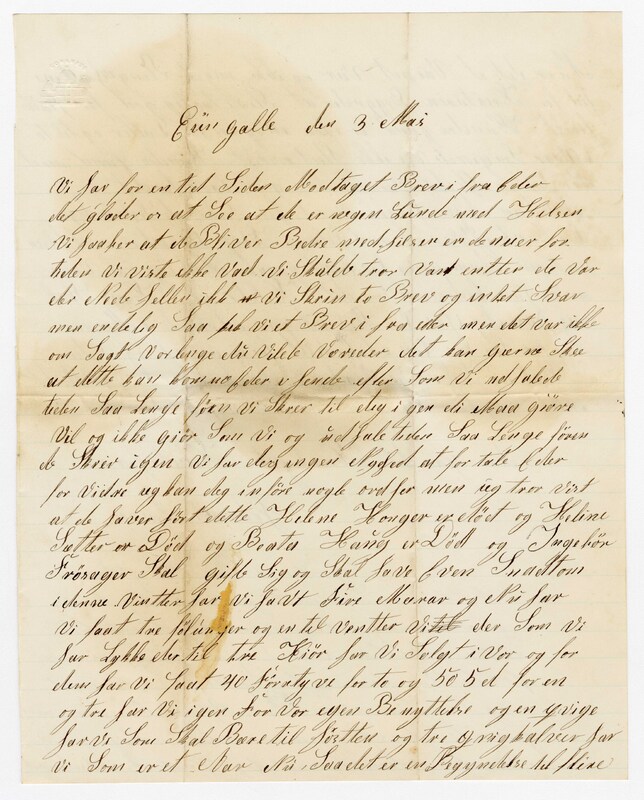 Eün galle den 3 Mai
Vi har for en tid Siden Modtaget Brev i fra Eder
det glæder os at See at de er nogen Lunde med Helsen
Vi haaber at de Bliver Bedre med helsen en de nu er for
tiden Vi Viste ikke Vad Vi Skulde tror Vart entter de Var
der Nede heller ikk Vi Skrin to Brev og intet Svar
men endelig Saa Vi et Brev i fra eder men det var ikke
om Sagt Vor lenge du Vilde Være der det kan gærne Skee
at dette kan komme Eder i hende efter Som Vi udhalede
tiden Saa Lenge føren Vi Skrev til deg i gen di Maa giøre
Vil og ikke giør Som Vi og üdhale tiden Saa Lenge føren
de Skriv igen Vi har deg ingen Nyhed at for tale Eder
for Vidre eg kan deg inføre nogle ord her men eg tror vist
at de haver hørt dette Helene Honger er død og Heline
Sætter er Død og Beata Haug er Død og Ingebör
Frösager Skal gifte Sig og Skal have Even Suadtom
i denne Vintter har Vi havt Fire Marar og Nu har
Vi faat tre følunger og en til Ventter Vi der Som Vi
har Lykke der til tre Kiør har Vi Solgt i Vor og for
dem har Vi faat 40 Förntyve for to og 50 5 d for en
og tre har Vi igen For Vor egen Benyttelse og en qvige
har Vi Som Skal Bære til høsten og tre qvigkalver har
Vi Som er et Aar Nu Saa det er en Begyndelse til flere